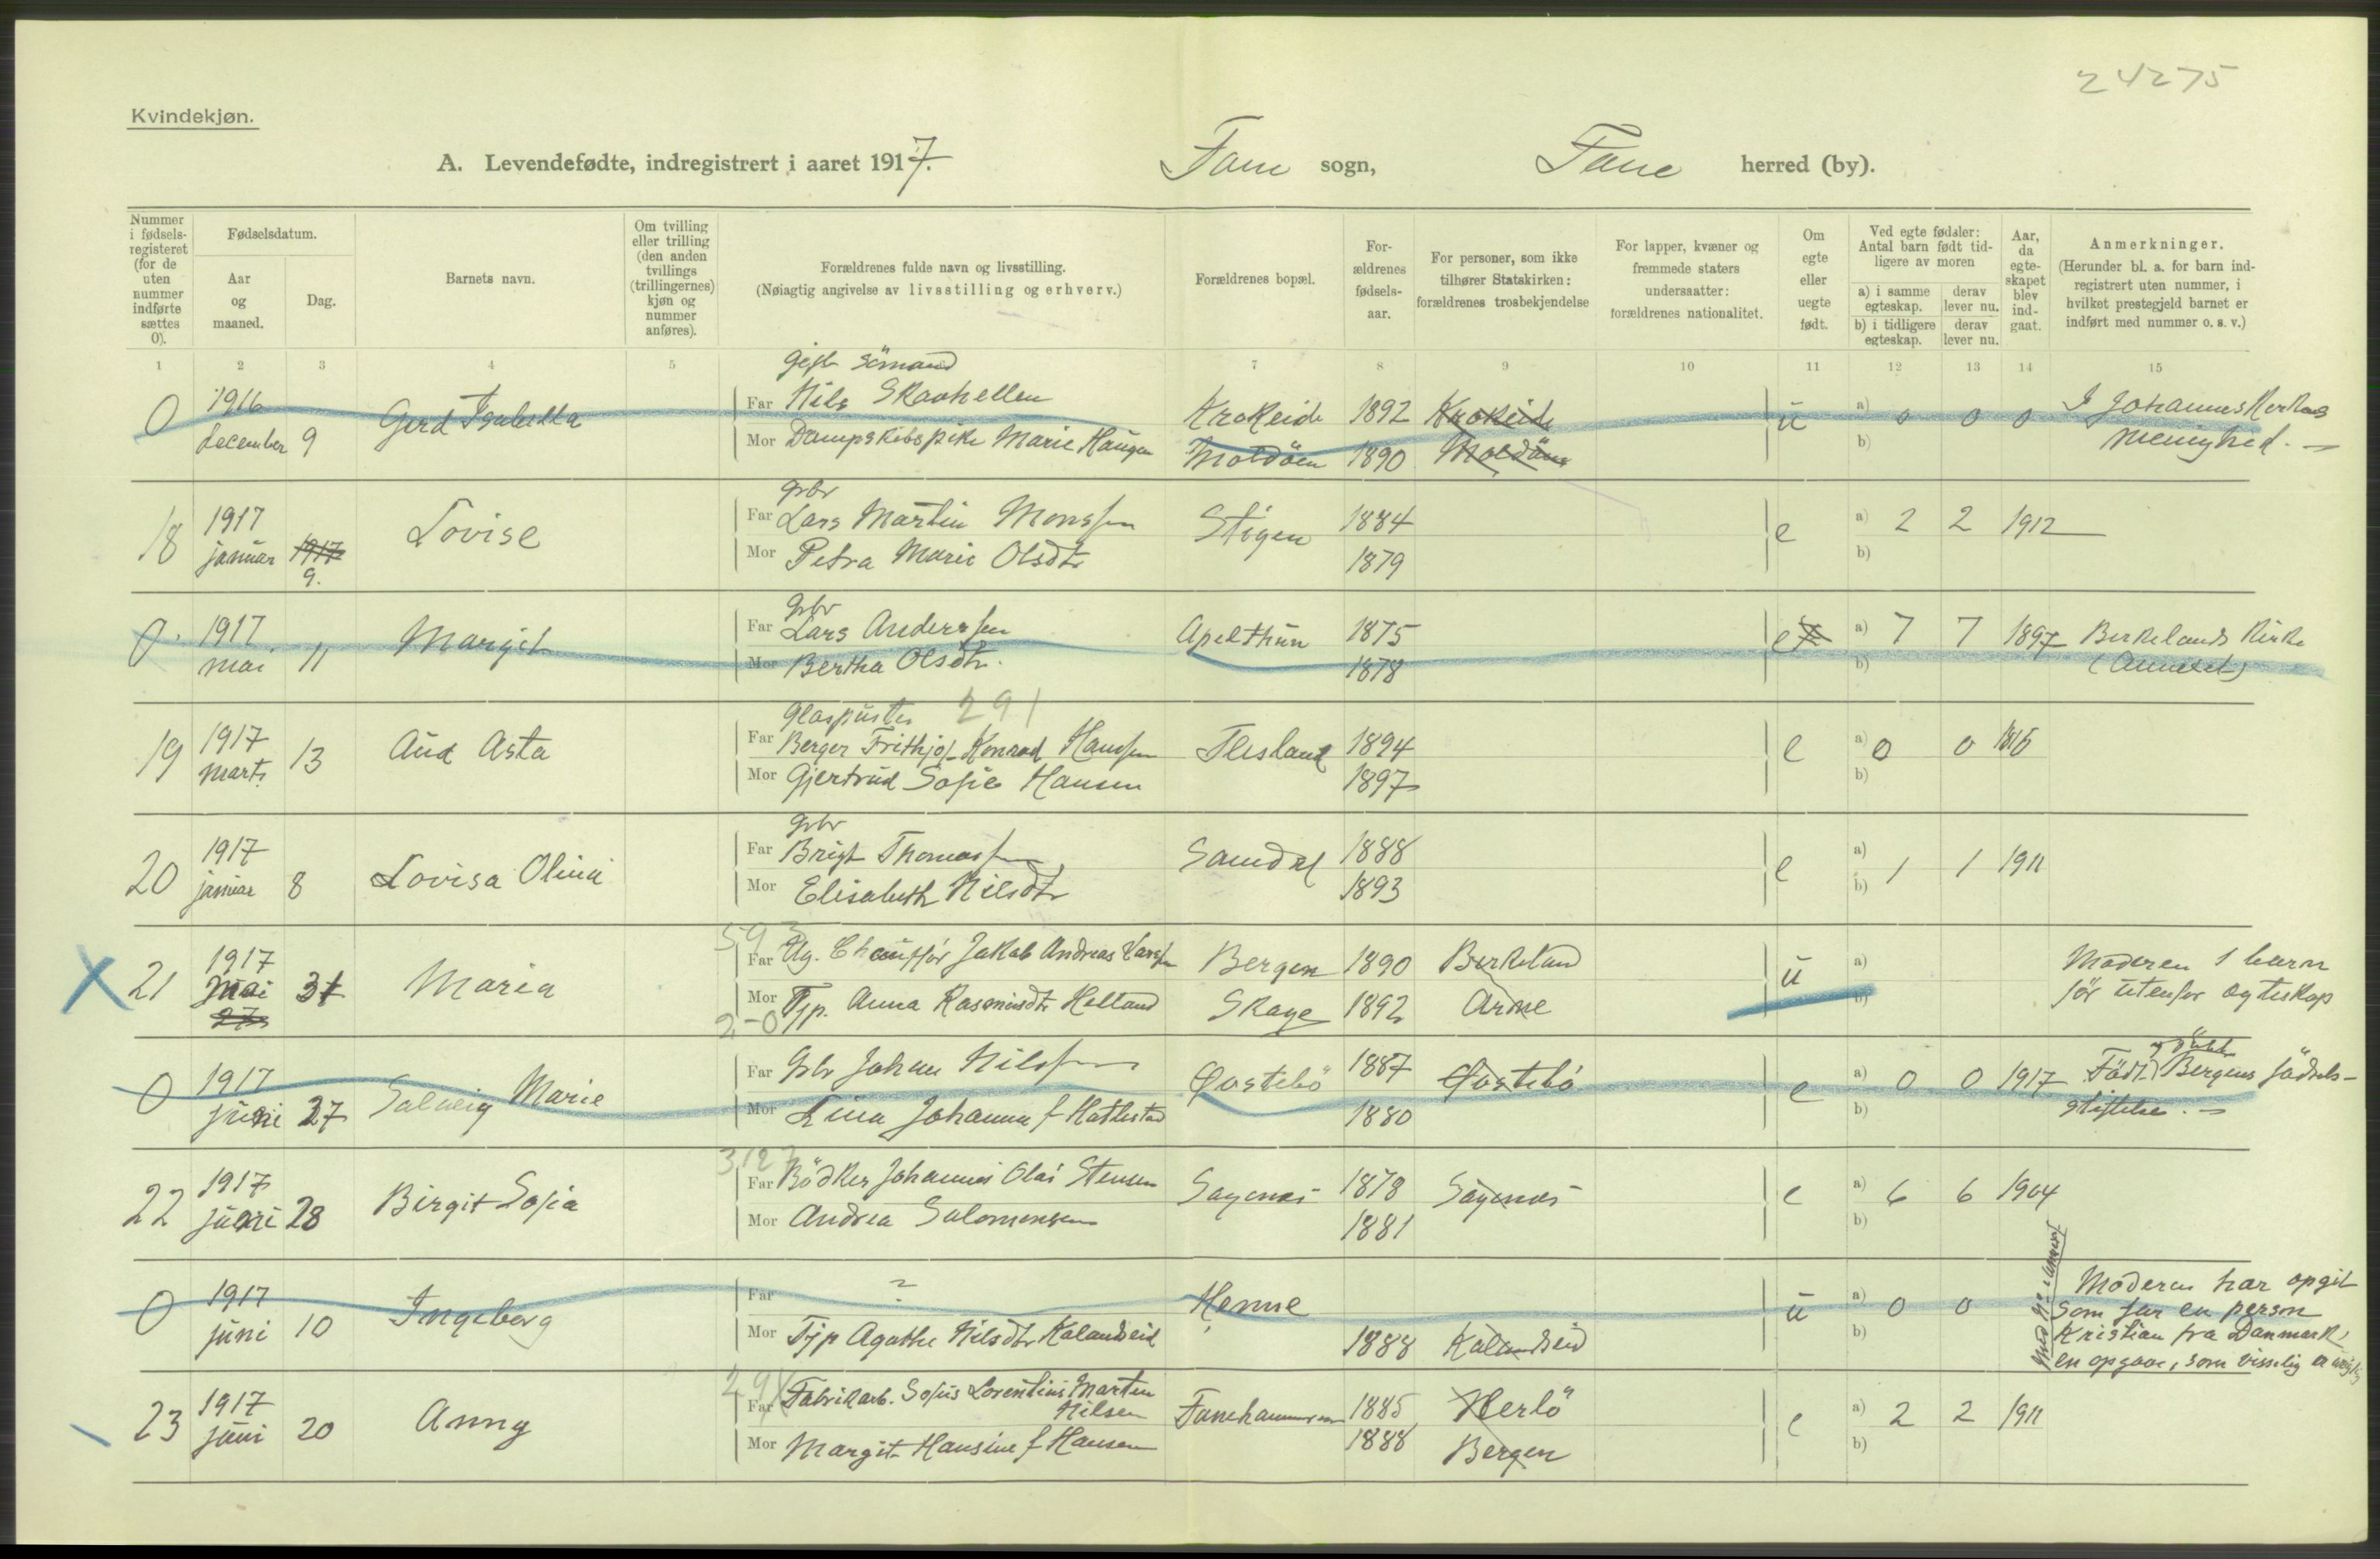 24275
Kvindekjøn.
A. Levendefødte, indregistrert i aaret 1917. Fane sogn, Fane herred (by).
Nummer i fødselsregisteret (for de uten nummer indførte sættes 0).
Fødselsdatum.
Aar og maaned.
Dag.
Barnets navn.
Om tvilling eller trilling (den anden tvillings (trillingernes) kjøn og nummer anføres).
Forældrenes fulde navn og livsstilling.
(Nøiagtig angivelse av livsstilling og erhverv.)
Forældrenes bopæl.
Forældrenes fødselsaar.
For personer, som ikke tilhører Statskirken: forældrenes trosbekjendelse
For lapper, kvæner og fremmede staters undersaatter: forældrenes nationalitet.
Om egte eller uegte født.
Ved egte fødsler: Antal barn født tidligere av moren
a) i samme egteskap. derav lever nu.
b) i tidligere egteskap. derav lever nu.
Aar, da egteskapet blev indgaat.
Anmerkninger.
(Herunder bl. a. for barn indregistrert uten nummer, i hvilket prestegjeld barnet er indført med nummer o. s. v.)
1 2 3 4 5 7 8 9 10 11 12 13 14 15
Gift Sömand
0 1916 Gerd Isabella Far Nils Skaahellen Krokeide 1892 Krokeide ü a) 0 0 0 I Johanneskirkens
december 9 Mor Dampskibspike Marie Haugen Moldöen 1890 Moldöen b) menighed.
Gbr
18 1917 Lovise Far Lars Martin Monssen Stigen 1884 e a) 2 2 1912
januar 1917 9. Mor Petra Marie Olsdtr 1879 b)
Gbr
0 1917 Margit Far Lars Anderssen Apelthun 1875 e a) 7 7 1897 Birkelands Kirke
mai 11 Mor Bertha Olsdtr. 1878 b) (Annexet)
Glaspuster 291
19 1917 Aud Asta Far Berger Frithjof Konrad Hanssen Flesland 1894 e a) 0 0 1916
marts 13 Mor Gjertrud Sofie Hansen 1897 b)
Gbr
20 1917 Lovisa Olina Far Brigt Thomassen Samdal 1888 e a)
januar 8 Mor Elisabeth Nilsdtr 1893 b) 1 1 1911
X 21 1917 Maria Far Ug. Chauffør Jakob Andreas Bergen 1890 Birkeland ü a) Moderen 1 barn
Mai 31 Mor Tjp. Anna Rasmusdtr Helland Skage 1892 Arne b) før utenfor egteskap
27 2-0
0 1917 Solveig Marie Far Gbr Johan Nilssen 1887 e a) 0 0 1917 Født Bergens fødsels-
juni 27 Mor Lina Johanna f Hatlestad 1880 b) stiftelse.
22 1917 Birgit Sofia Far Bödker Johannes Olai Stensen Sagenes 1878 Sagenes e a) 6 6 1904
juni 28 Mor Andrea Salomonsen 1881 b)
0 1917 Ingeborg Far ? Henne ü a) 0 0 Moderen har opgit
juni 10 Mor Tjp Agathe Nilsdtr Kalandseid 1888 Kalandseid b) som far en person
Kristian fra Danmark,
en opgave, som visselig er
23 1917 Anny Far Fabrikarb. Sofus Lorentius Marten Nilsen Fanehammeren 1885 Herlö e a) 2 2 1911
juni 20 Mor Margit Hansine f Hansen 1888 Bergen b)